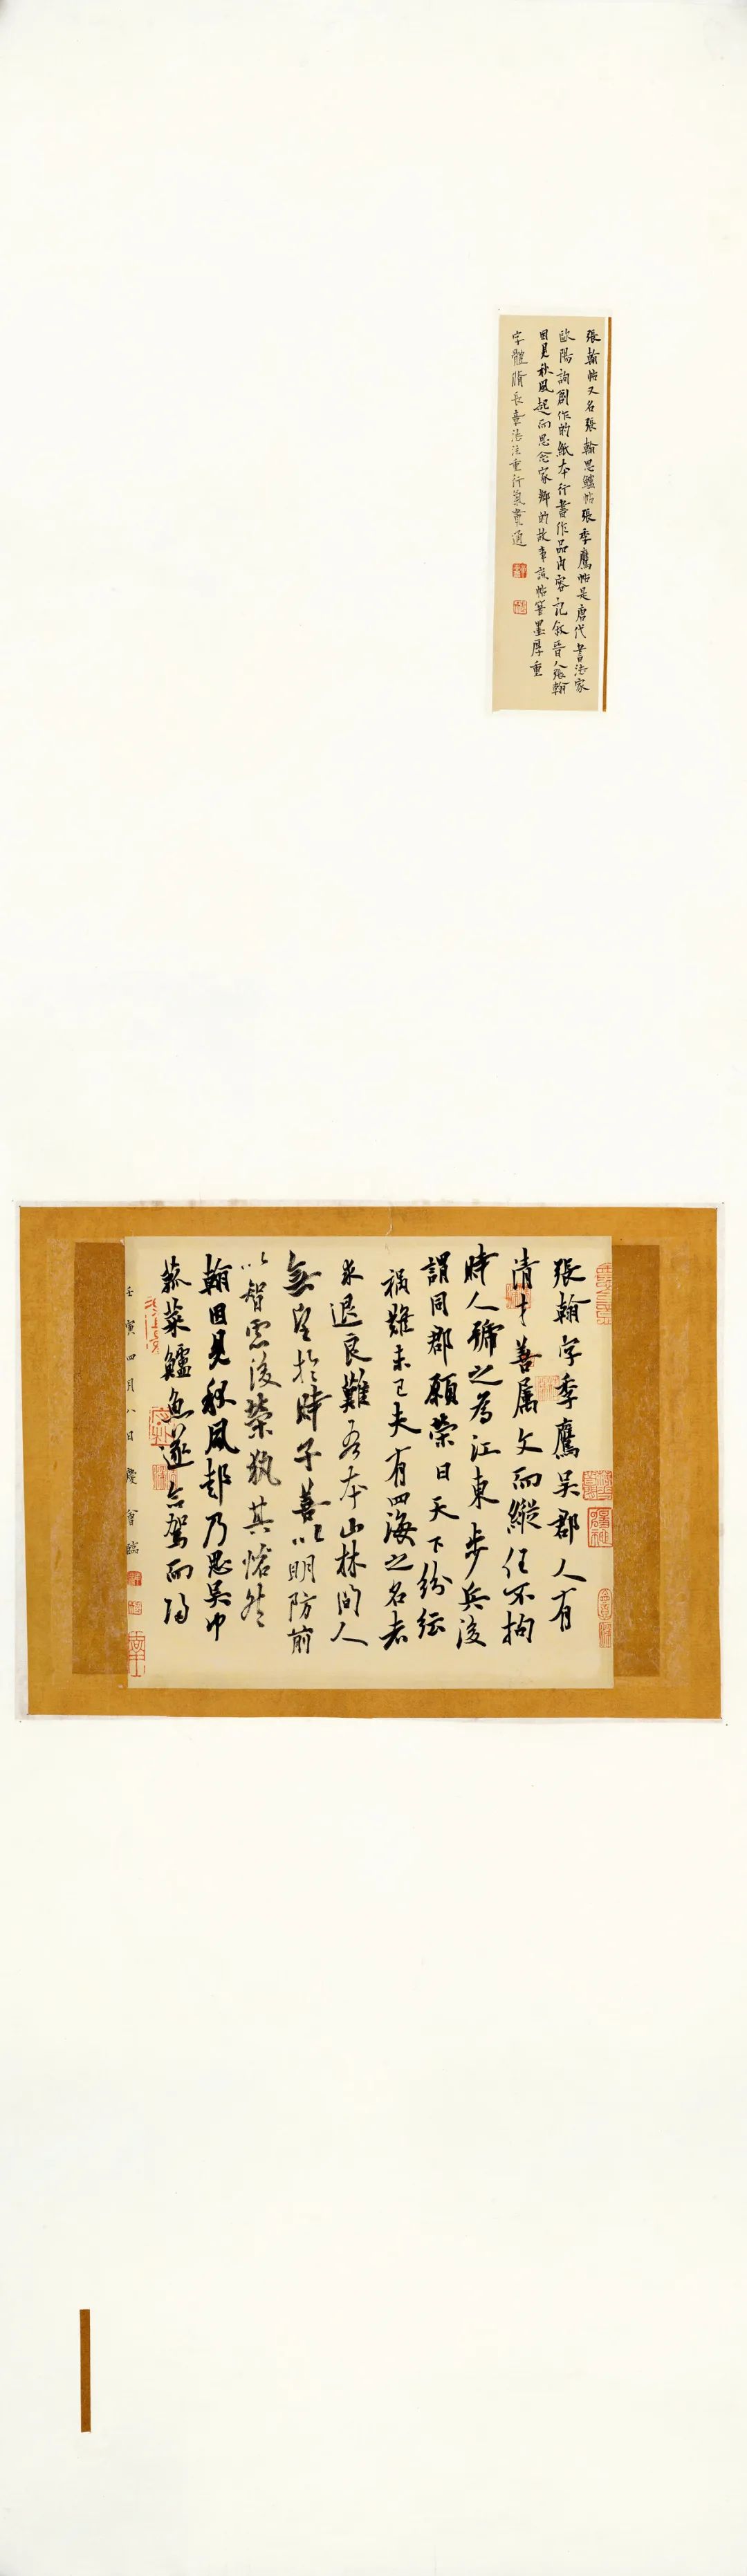 張翰帖又名張翰思鱸帖張季鷹帖是唐代書法家
歐陽詢創作的紙本行書作品内容記叙晉人張翰
因見秋風起而思念家鄉的故事該帖筆墨厚重
字體脩長章法注重行氣貫通
張翰字季鷹吴郡人有
清才善属文而縱任不拘
時人號之為江東步兵後
謂同郡顧榮曰天下紛紜
禍難未已夫有四海之名者
求退良難吾本山林間人
無望於時子善以明防前
以智慮後榮執其愴然
翰因見秋風起乃思吴中
菰菜鱸魚遂命駕而歸
壬寅四月八日慶會臨